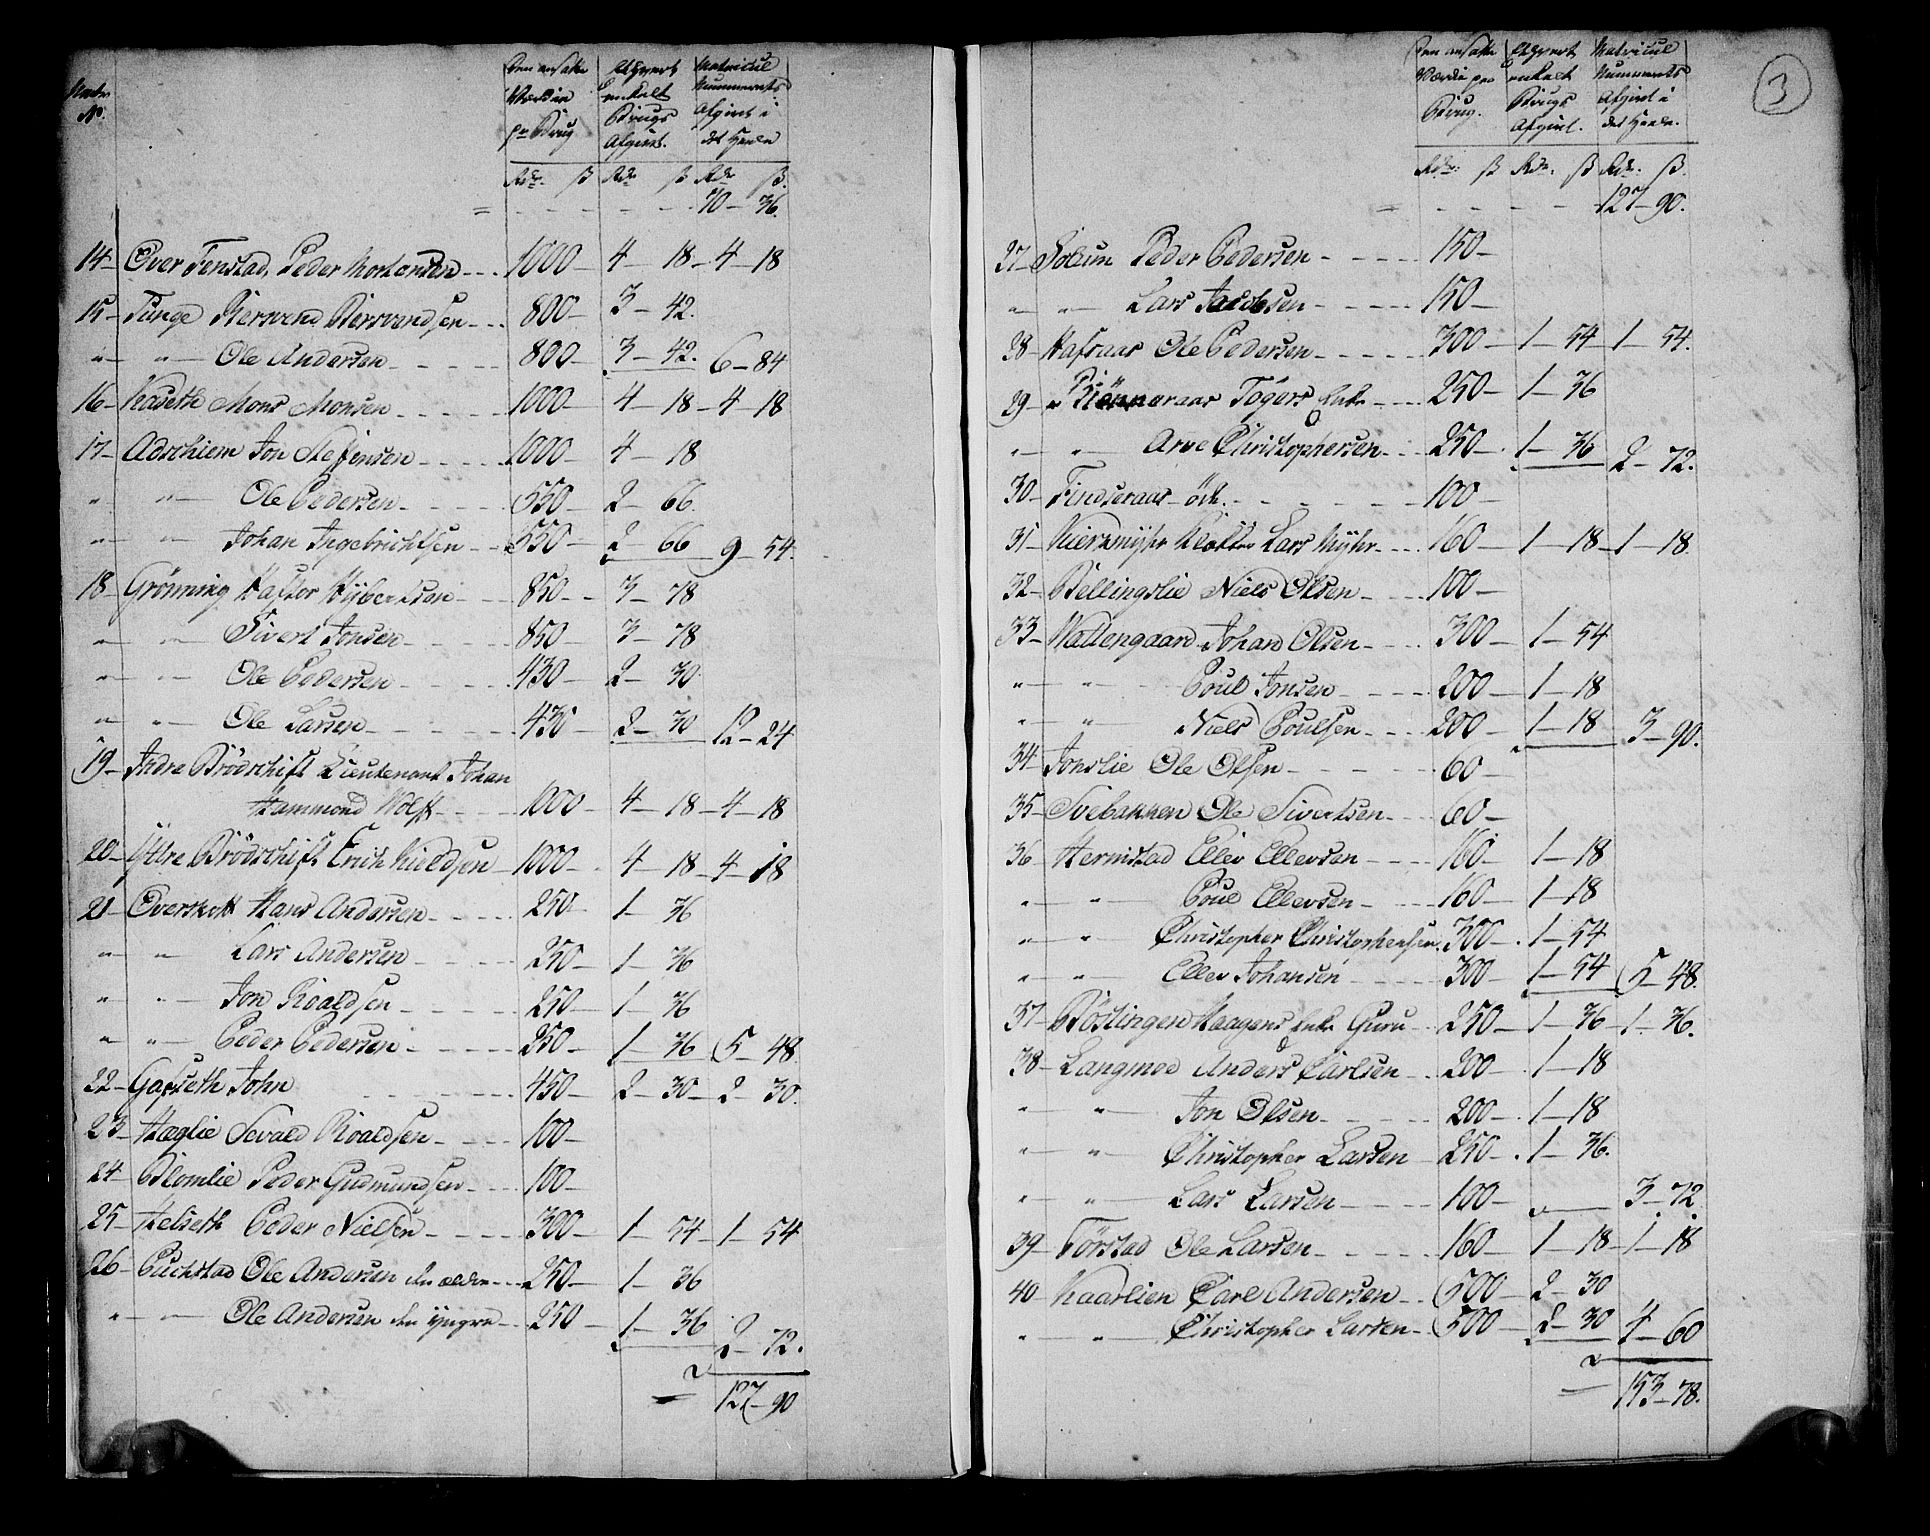 Matr: No.
Den ansatte Værdie pr Brug
Ethvert enkelt Brugs Afgivt.
Matricul Nummerets Afgivt i det Heele
Rdr. ß Rdr ß Rdr ß.
= - - - - - - 70 - 36.
14 - Over Fenstad, Peder Mortensen - - - 1000 - 4 - 18 - 4 - 18
15 - Tunge Bersvend Bersvendsen - - - 800 - 3 - 42.
" " Ole Andersen - - - - 800 - 3 - 42. 6 - 84
16 - Kadseth Mons Monsen - - - - 1000 - 4 - 18 - 4 - 18
17 - Adschiem Jon Steffensen - - - - 1000 - 4 - 18
" " Ole Pedersen - - - - 550 - 2 - 66.
" " Johan Ingebrichtsen - - 550 - 2 - 66 9 - 54.
18 - Grönning Hafter Hybertsen - - - 850 - - 3 - 78
" " Sivert Jonsen - - - - 850 - 3 - 78
" " Ole Pedersen - - - - 430 - 2 - 30.
" " Ole Larsen - - - - 430 2 - 30 12 - 24
19 - Indre Brödschift Lieutenant Johan
Hammond Wolff - - - 1000 - 4 - 18 - 4 - 18
20 - Ytre Brödschift Erich Kieldsen - 1000 - 4 - 18 - 4 - 18
21 - Overskott Hans Andersen - - - - 250 - 1 - 36
" " Lars Andersen - - - - 250 - 1 - 36
" " Jon Roaldsen - - - - 250 - 1 - 36
" " Peder Pedersen - - - - 250 - 1 - 36 5 - 48
22 - Gafseth John - - - - 450 - 2 - 30 - 2 - 30.
23 - Hæglie Sevald Roaldsen - - - 100 -
24 - Blomlie Peder Gudmundsen - - - 100 -
25 - Helseth Peder Nielsen - - - 300 - 1 - 54 - 1 - 54
26 - Puchstad Ole Andersen den ældre - - - 250 - 1 - 36
" " Ole Andersen den yngre - - 250 - 1 - 36 2 - 72.
= 127 - 90
3
Den ansatte Værdie per Brug.
Ethvert enkelt Brugs Afgivt.
Matricul Nummerets Afgivt i det Heele.
Rdr: ß Rdr. ß Rdr. ß.
= - - - - - 127 - 90.
27 - Solum Peder Pedersen - - - - 150 -
" " Lars Jacobsen - - - - 150 -
28 - Hafraas Ole Pedersen - - - - 300 - 1 - 54 - 1 - 54.
29 - Rönneraas Tögers Enke - - - 250 - 1 - 36
" " Arve Christophersen - - - 250 - 1 - 36 2 - 72.
30 - Findseraas - öde. - - - - - 100 -
31 - Kiersmyhr Klokker Lars Myhr - - - 160 - 1 - 18 - 1 - 18.
32 - Bellingslie Niels Olsen - - - 100 -
33 - Wattengaard Johan Olsen - - - 300 - 1 - 54
" " Poul Jonsen - - - - 200 - 1 - 18
" " Niels Poulsen - - - 200 - 1 - 18 3 - 90.
34 - Jonslie Ole Olsen - - - - - 60 -
35 - Svebakken Ole Sivertsen - - - 60 -
36 - Hernistad Ellev Ellevsen - - - 160 - 1 - 18
" " Poul Ellevsen - - - - 160 - 1 - 18
" " Christopher Christophersen 300 - 1 - 54
" " Ellev Johansen - - - - 300 - 1 - 54 5 - 48.
37 - Röslingen Haagens Enke Guru - - 250 - 1 - 36 - 1 - 36.
38 - Langmoe Anders Carlsen - - 200 - 1 - 18
" " Jon Olsen - - - - 200 - 1 - 18
" " Christopher Larsen - 250 - 1 - 36.
" " Lars Larsen - - - - 100 - 3 - 72
39 - Törstad Ole Larsen - - - - 160 - 1 - 18 - 1 - 18
40 - Kaarlien Carl Andersen - - 500 - 2 - 30
" " Christopher Larsen - - 500 - 2 - 30 4 - 60
= 153 - 78.